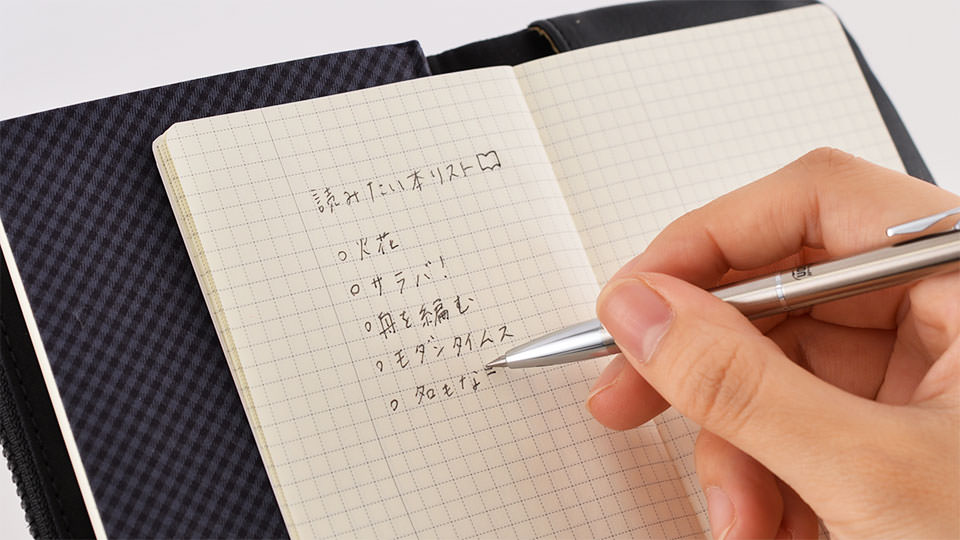 読みたい本リスト
○火花
○サラバ!
○舟を編む
○モダンタイムス
○名もな